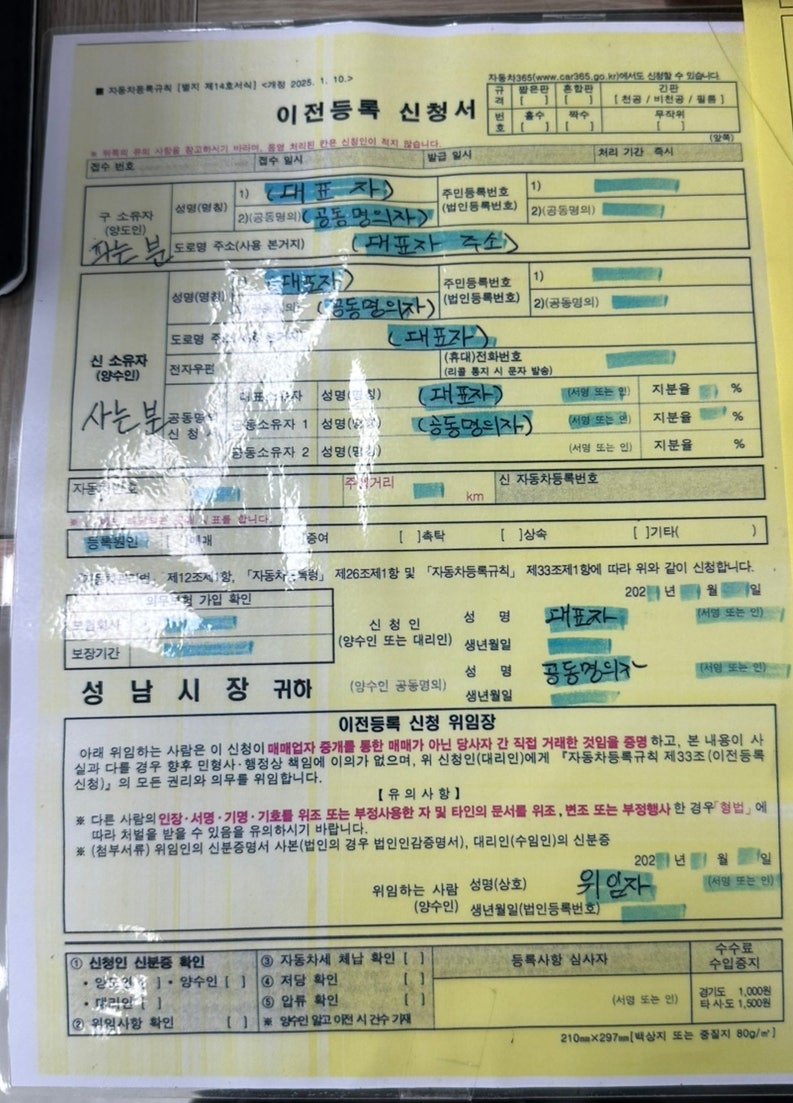 ■ 자동차등록규칙 [별지 제14호서식] <개정 2025. 1. 10.>
자동차365(www.car365.go.kr)에서도 신청할 수 있습니다.
이전등록 신청서
규격 짧은판 [ ] 혼합판 [ ] 긴판 [ 천공 / 비천공 / 필름 ]
번호 홀수 [ ] 짝수 [ ] 무작위 [ ]
(앞쪽)
※ 뒤쪽의 유의 사항을 참고하시기 바라며, 음영 처리된 칸은 신청인이 적지 않습니다.
접수 번호 접수 일시 발급 일시 처리 기간 즉시
구 소유자 (양도인) 파는 분
성명(명칭) 1) (대표자) 주민등록번호 (법인등록번호) 1)
2)(공동명의) (공동명의자) 2)(공동명의)
도로명 주소(사용 본거지) (대표자 주소)
신 소유자 (양수인) 사는 분
성명(명칭) (대표자) 주민등록번호 (법인등록번호) 1)
(공동명의자) 2)(공동명의)
도로명 (대표자)
전자우편 (휴대)전화번호 (리콜 통지 시 문자 발송)
공동명의 신청
대표소유자 성명(명칭) (대표자) (서명 또는 인) 지분율 %
공동소유자 1 성명(명칭) (공동명의자) (서명 또는 인) 지분율 %
공동소유자 2 성명(명칭) (서명 또는 인) 지분율 %
주행거리 km 신 자동차등록번호
등록원인 [ ]매매 [ ]증여 [ ]촉탁 [ ]상속 [ ]기타( )
제12조제1항, 「자동차등록령」 제26조제1항 및 「자동차등록규칙」 제33조제1항에 따라 위와 같이 신청합니다.
202 년 월 일
의무보험 가입 확인
보험회사
보장기간
신 청 인 (양수인 또는 대리인) 성 명 대표자 (서명 또는 인)
생년월일
(양수인 공동명의) 성 명 공동명의자 (서명 또는 인)
생년월일
성 남 시 장 귀하
이전등록 신청 위임장
아래 위임하는 사람은 이 신청이 매매업자 중개를 통한 매매가 아닌 당사자 간 직접 거래한 것임을 증명 하고, 본 내용이 사
실과 다를 경우 향후 민형사·행정상 책임에 이의가 없으며, 위 신청인(대리인)에게 『자동차등록규칙 제33조(이전등록
신청)』의 모든 권리와 의무를 위임합니다.
【 유 의 사 항 】
※ 다른 사람의 인장·서명·기명·기호를 위조 또는 부정사용한 자 및 타인의 문서를 위조, 변조 또는 부정행사 한 경우 「형법」에
따라 처벌을 받을 수 있음을 유의하시기 바랍니다.
※ (첨부서류) 위임인의 신분증명서 사본(법인의 경우 법인인감증명서), 대리인(수임인)의 신분증
202 년 월 일
위임하는 사람 (양수인) 성명(상호) 위임자 (서명 또는 인)
생년월일(법인등록번호)
① 신청인 신분증 확인
• 양도인 [ ] • 양수인 [ ]
• 대리인 [ ]
② 위임사항 확인 [ ]
③ 자동차세 체납 확인 [ ]
④ 저당 확인 [ ]
⑤ 압류 확인 [ ]
※ 양수인 알고 이전 시 건수 기재
등록사항 심사자
(서명 또는 인)
수수료 수입증지
경기도 1,000원
타 시·도 1,500원
210㎜×297㎜[백상지 또는 중질지 80g/㎡]